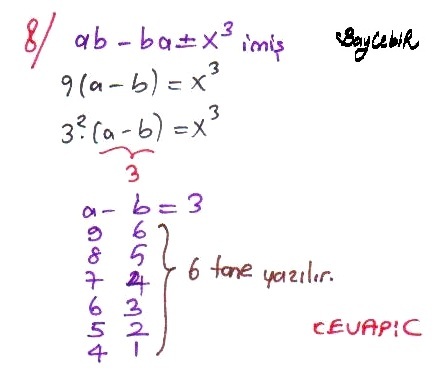 8/ ab - ba = x³ imiş
BayCebiR
9(a - b) = x³
3².(a - b) = x³
3
a - b = 3
9 6
8 5
7 4
6 3
5 2
4 1
6 tane yazılır.
CEVAP:C